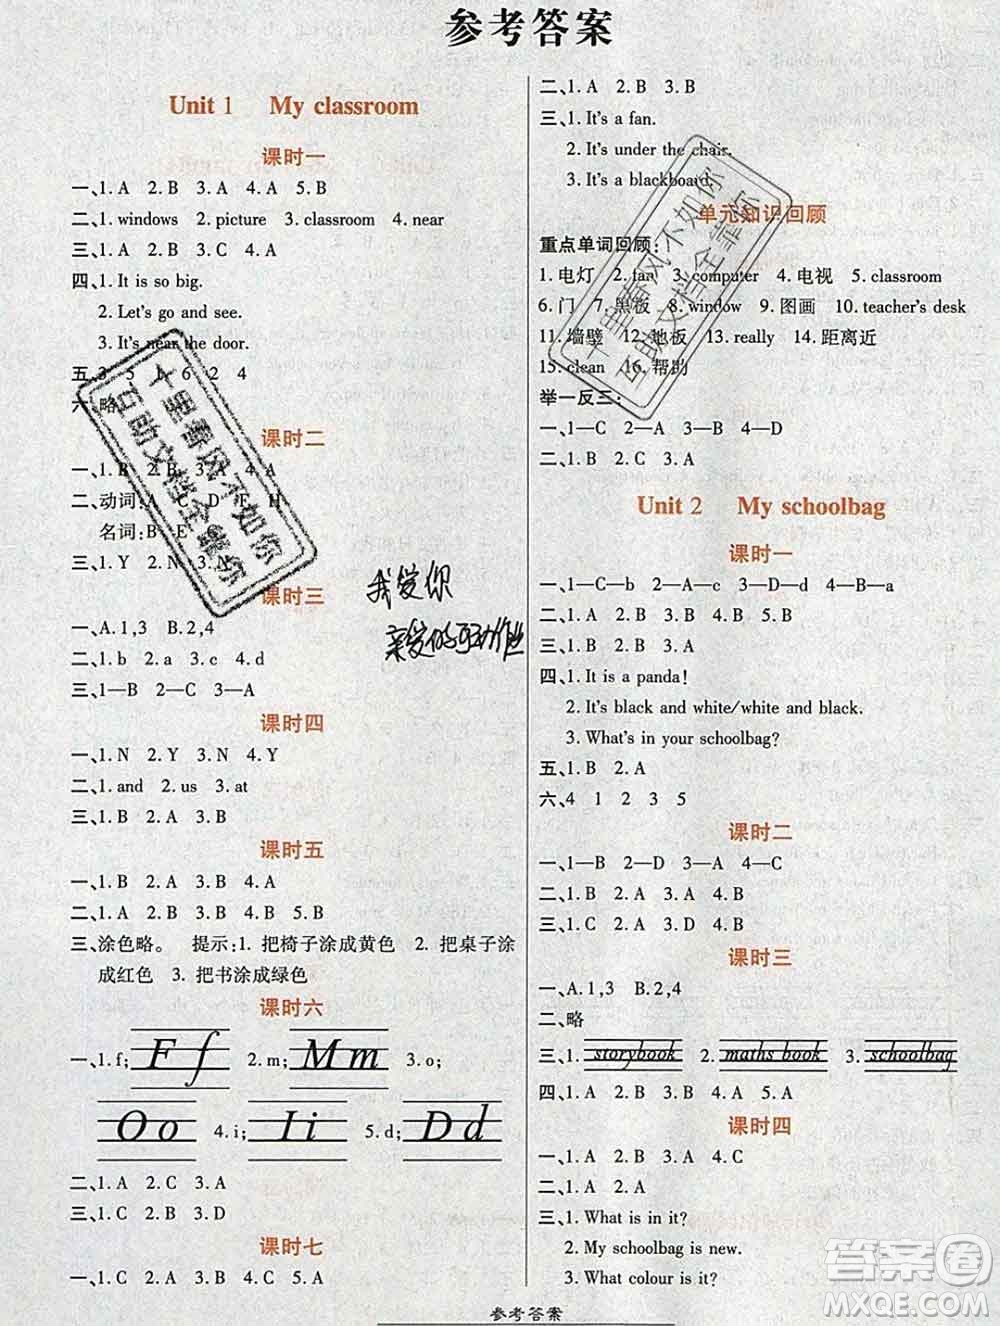 参考答案
Unit 1 My classroom
课时一
一、1. A 2. B 3. A 4. A 5. B
二、1. windows 2. picture 3. classroom 4. near
三、1. A 2. A 3. B 4. A
四、1. It is so big.
2. Let's go and see.
3. It's near the door.
五、3 5 1 6 2 4
六、略
课时二
一、1. B 2. B 3. A 4. A
二、动词:A C D F H
名词:B E G
三、1. Y 2. N 3. N
课时三
一、A. 1,3 B. 2,4
二、1. b 2. a 3. c 4. d
三、1—B 2—C 3—A
课时四
一、1. N 2. Y 3. N 4. Y
二、1. and 2. us 3. at
三、1. B 2. A 3. B
课时五
一、1. B 2. A 3. B 4. A
二、1. A 2. B 3. A 4. B 5. A
三、涂色略。 提示:1. 把椅子涂成黄色 2. 把桌子涂
成红色 3. 把书涂成绿色
课时六
一、1. f; F f 2. m; M m 3. o;
O o 4. i; I i 5. d; D d
二、1. A 2. C 3. A
三、1. C 2. B 3. D
课时七
一、1. C 2. A 3. B 4. C 5. A
二、1. A 2. B 3. B
三、1. It's a fan.
2. It's under the chair.
3. It's a blackboard.
单元知识回顾
重点单词回顾:
1. 电灯 2. fan 3. computer 4. 电视 5. classroom
6. 门 7. 黑板 8. window 9. 图画 10. teacher's desk
11. 墙壁 12. 地板 13. really 14. 距离近
15. clean 16. 帮助
举一反三:
一、1—C 2—B 3—A 4—D
二、1. B 2. C 3. A
Unit 2 My schoolbag
课时一
一、1—C—b 2—A—c 3—D—d 4—B—a
二、1. B 2. A 3. B 4. B 5. B
三、1. A 2. A 3. B 4. A
四、1. It is a panda!
2. It's black and white/white and black.
3. What's in your schoolbag?
五、1. B 2. A
六、4 1 2 3 5
课时二
一、1—B 2—D 3—A 4—C
二、1. B 2. A 3. A 4. B
三、1. C 2. A 3. D 4. B
课时三
一、A. 1,3 B. 2,4
二、略
三、1. storybook 2. maths book 3. schoolbag
四、1. A 2. B 3. B 4. A 5. A
课时四
一、1. A 2. B 3. A 4. C
二、1. A 2. A
三、1. What is in it?
2. My schoolbag is new.
3. What colour is it?
十里春风不如你
百助文档全靠你
十里春风不如你
百助文档全靠你
我爱你
亲爱的互动作业
参考答案
答案圈
MXQE.COM